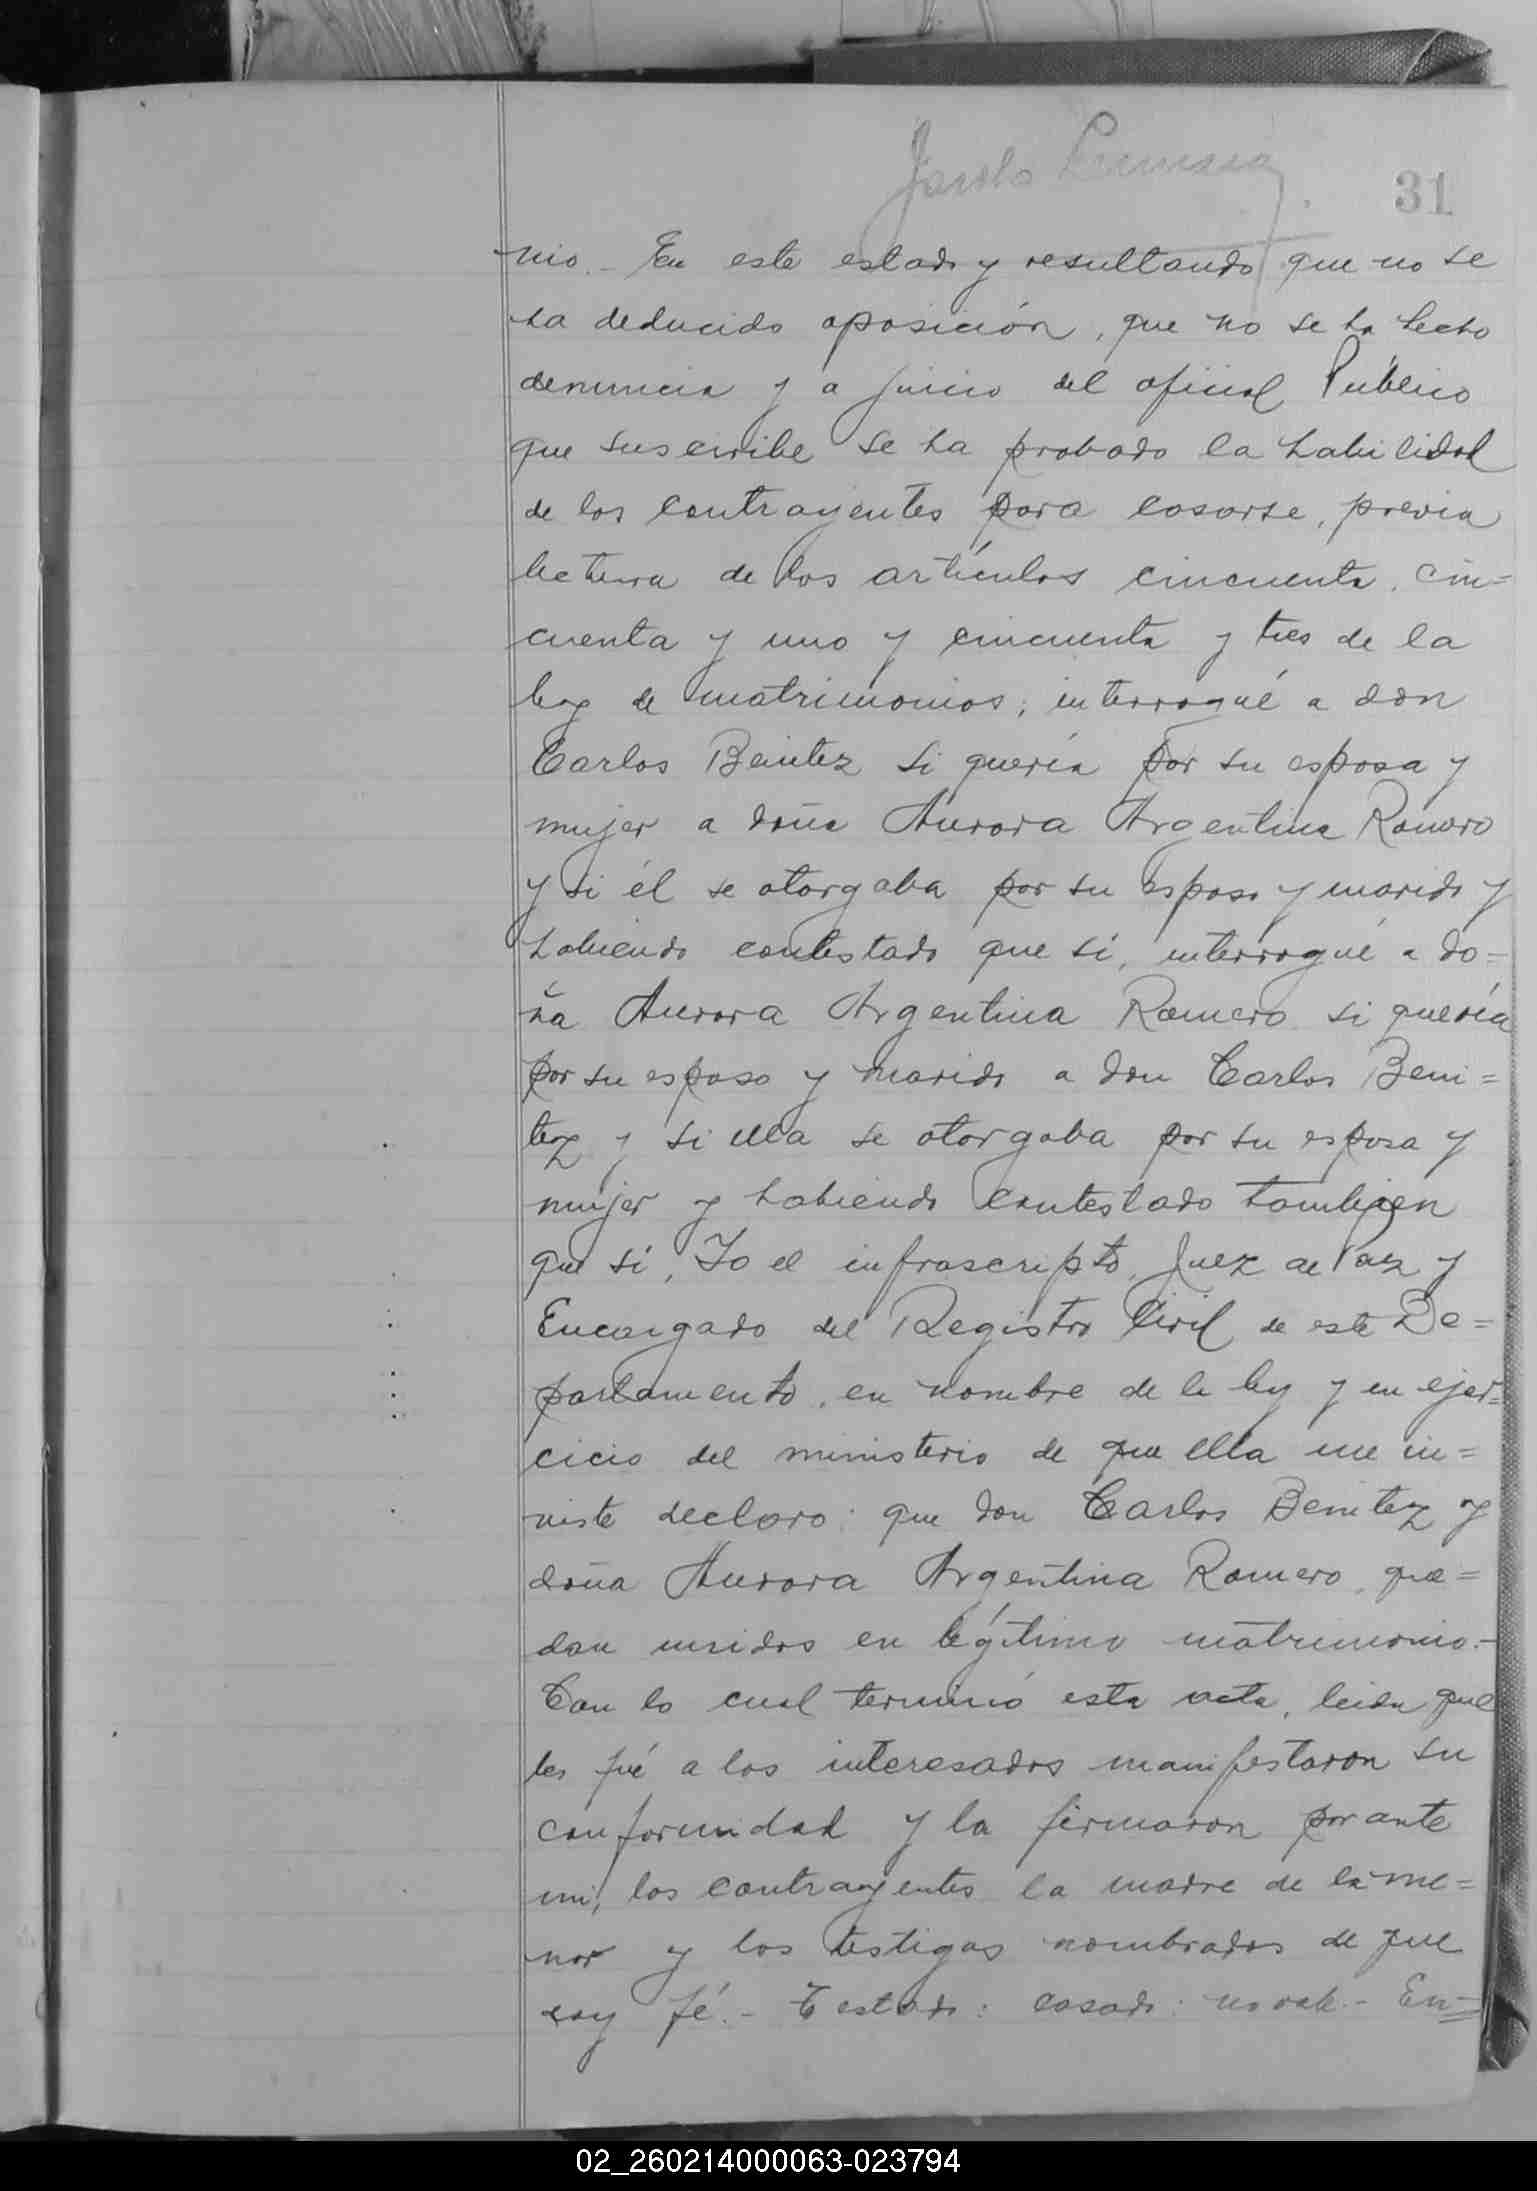 31
nio.- En este estado y resultando que no se
ha deducido oposición, que no se ha hecho
denuncia y a juicio del oficial Público
que suscribe se ha probado la habilidad
de los contrayentes para casarse, previa
lectura de los artículos cincuenta, cin=
cuenta y uno y cincuenta y tres de la
ley de matrimonios; interrogué a don
Carlos Benitez si quería por su esposa y
mujer a doña Aurora Argentina Romero
y si él se otorgaba por su esposo y marido y
habiendo contestado que sí, interrogué a do=
ña Aurora Argentina Romero si quería
por su esposo y marido a don Carlos Beni=
tez y si ella se otorgaba por su esposa y
mujer y habiendo contestado tambien
que sí, Yo el infrascripto, Juez de Paz y
Encargado del Registro Civil de este De=
partamento, en nombre de la ley y en ejer=
cicio del ministerio de que ella me in=
viste declaro: que don Carlos Benitez y
doña Aurora Argentina Romero, que=
dan unidos en legítimo matrimonio.-
Con lo cual terminó esta acta, leida que
les fué a los interesados manifestaron su
conformidad y la firmaron por ante
mi, los contrayentes la madre de la me=
nor y los testigos nombrados de que
doy fé.- Testado: casado: no vale.- En=
02_260214000063-023794